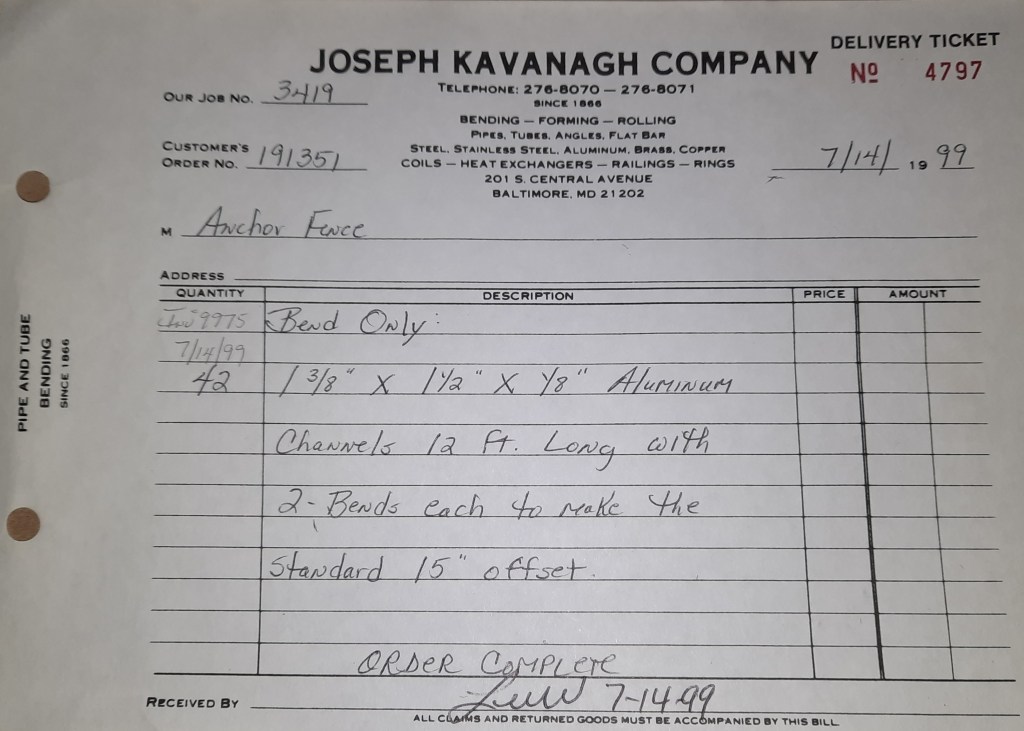 DELIVERY TICKET
JOSEPH KAVANAGH COMPANY
Nº 4797
TELEPHONE: 276-8070 — 276-8071
OUR JOB NO. 3419
SINCE 1866
BENDING — FORMING — ROLLING
PIPES, TUBES, ANGLES, FLAT BAR
STEEL, STAINLESS STEEL, ALUMINUM, BRASS, COPPER
COILS — HEAT EXCHANGERS — RAILINGS — RINGS
201 S. CENTRAL AVENUE
BALTIMORE, MD 21202
CUSTOMER'S
ORDER NO. 191351
7/14/ 19 99
M Anchor Fence
ADDRESS
QUANTITY DESCRIPTION PRICE AMOUNT
Inv 9975 Bend Only:
7/14/99
42 1 3/8" X 1 1/2" X 1/8" Aluminum
Channels 12 Ft. Long with
2- Bends each to make the
Standard 15" offset.
ORDER COMPLETE
RECEIVED BY 7-14-99
ALL CLAIMS AND RETURNED GOODS MUST BE ACCOMPANIED BY THIS BILL
PIPE AND TUBE
BENDING
SINCE 1866